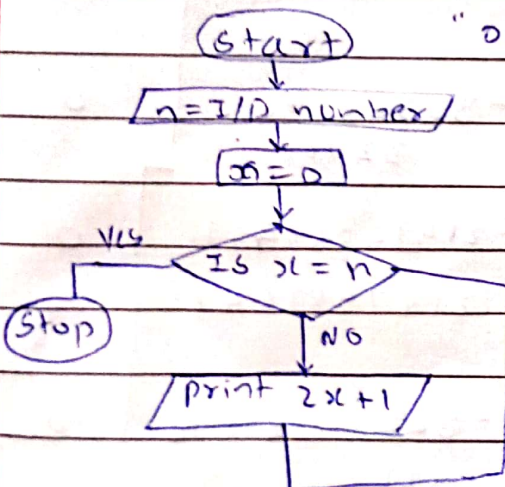 Start
n=I/P number
x=0
Yes
Is x=n
Stop
NO
print 2x+1